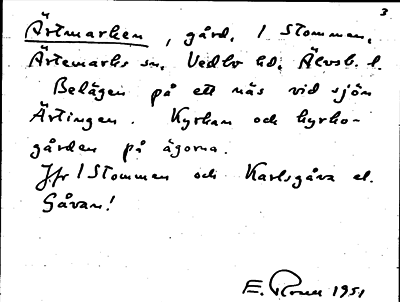 3
Ärtmarken, gård, 1 Stommen,
Ärtemarks sn, Vedbo hd. Älvsb. l.
Belägen på ett näs vid sjön
Ärtingen. Kyrkan och kyrko-
gården på ägorna.
Jfr 1 Stommen och Karlsgåva el.
Gåvan!
E. 1951